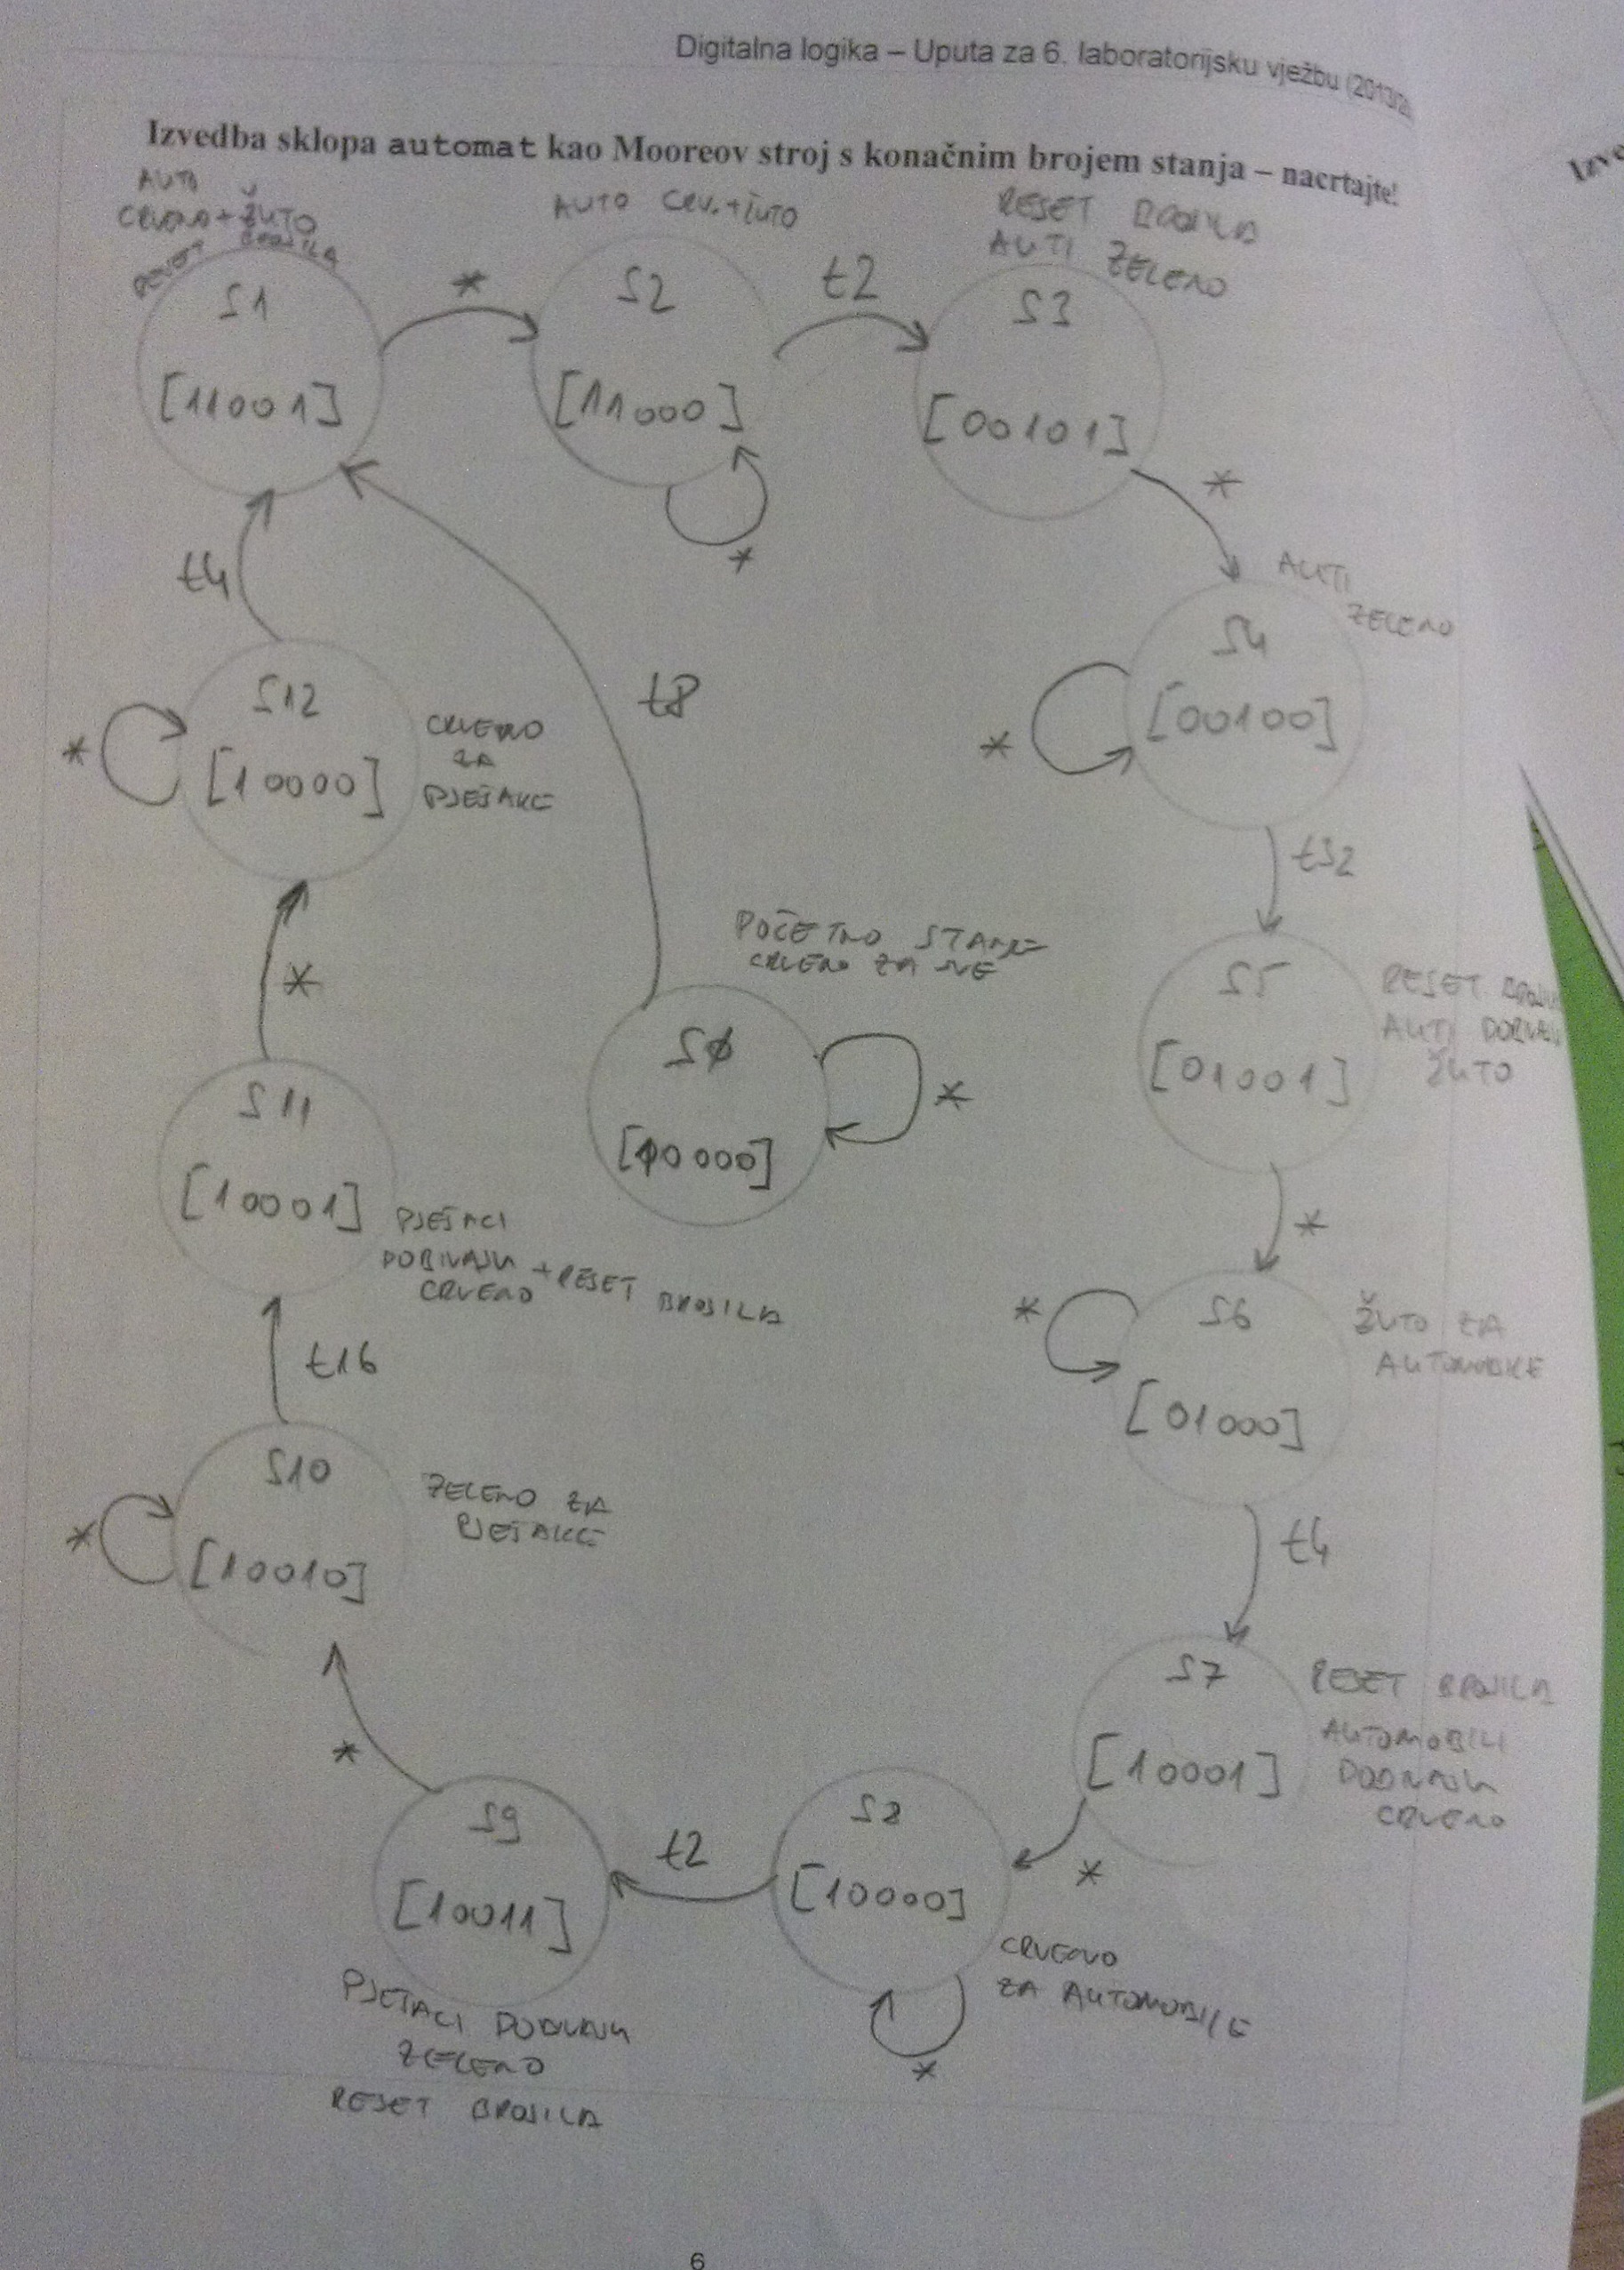 Digitalna logika – Uputa za 6. laboratorijsku vježbu (2013/2
Izvedba sklopa automat kao Mooreov stroj s konačnim brojem stanja – nacrtajte!
Izve
AUTI
CRVENO + ŽUTO
RESET BROJILA
S1
[11001]
*
AUTO CRV. + ŽUTO
S2
[11000]
*
t2
RESET BROJILA
AUTI ZELENO
S3
[00101]
*
AUTI
ZELENO
S4
[00100]
*
t32
S5
[01001]
RESET
AUTI
ŽUTO
*
S6
[01000]
*
ŽUTO ZA
AUTOMOBILE
t4
S7
[10001]
RESET BROJILA
AUTOMOBILI
DOBIVAJU
CRVENO
*
S8
[10000]
CRVENO
ZA AUTOMOBILE
*
t2
S9
[10011]
PJEŠACI DOBIVAJU
ZELENO
RESET BROJILA
*
S10
[10010]
*
ZELENO ZA
PJEŠAKE
t16
S11
[10001]
PJEŠACI
DOBIVAJU
CRVENO + RESET BROJILA
*
S12
[10000]
*
CRVENO
ZA
PJEŠAKE
t4
t8
POČETNO STANJE
CRVENO ZA SVE
S0
[10000]
*
6